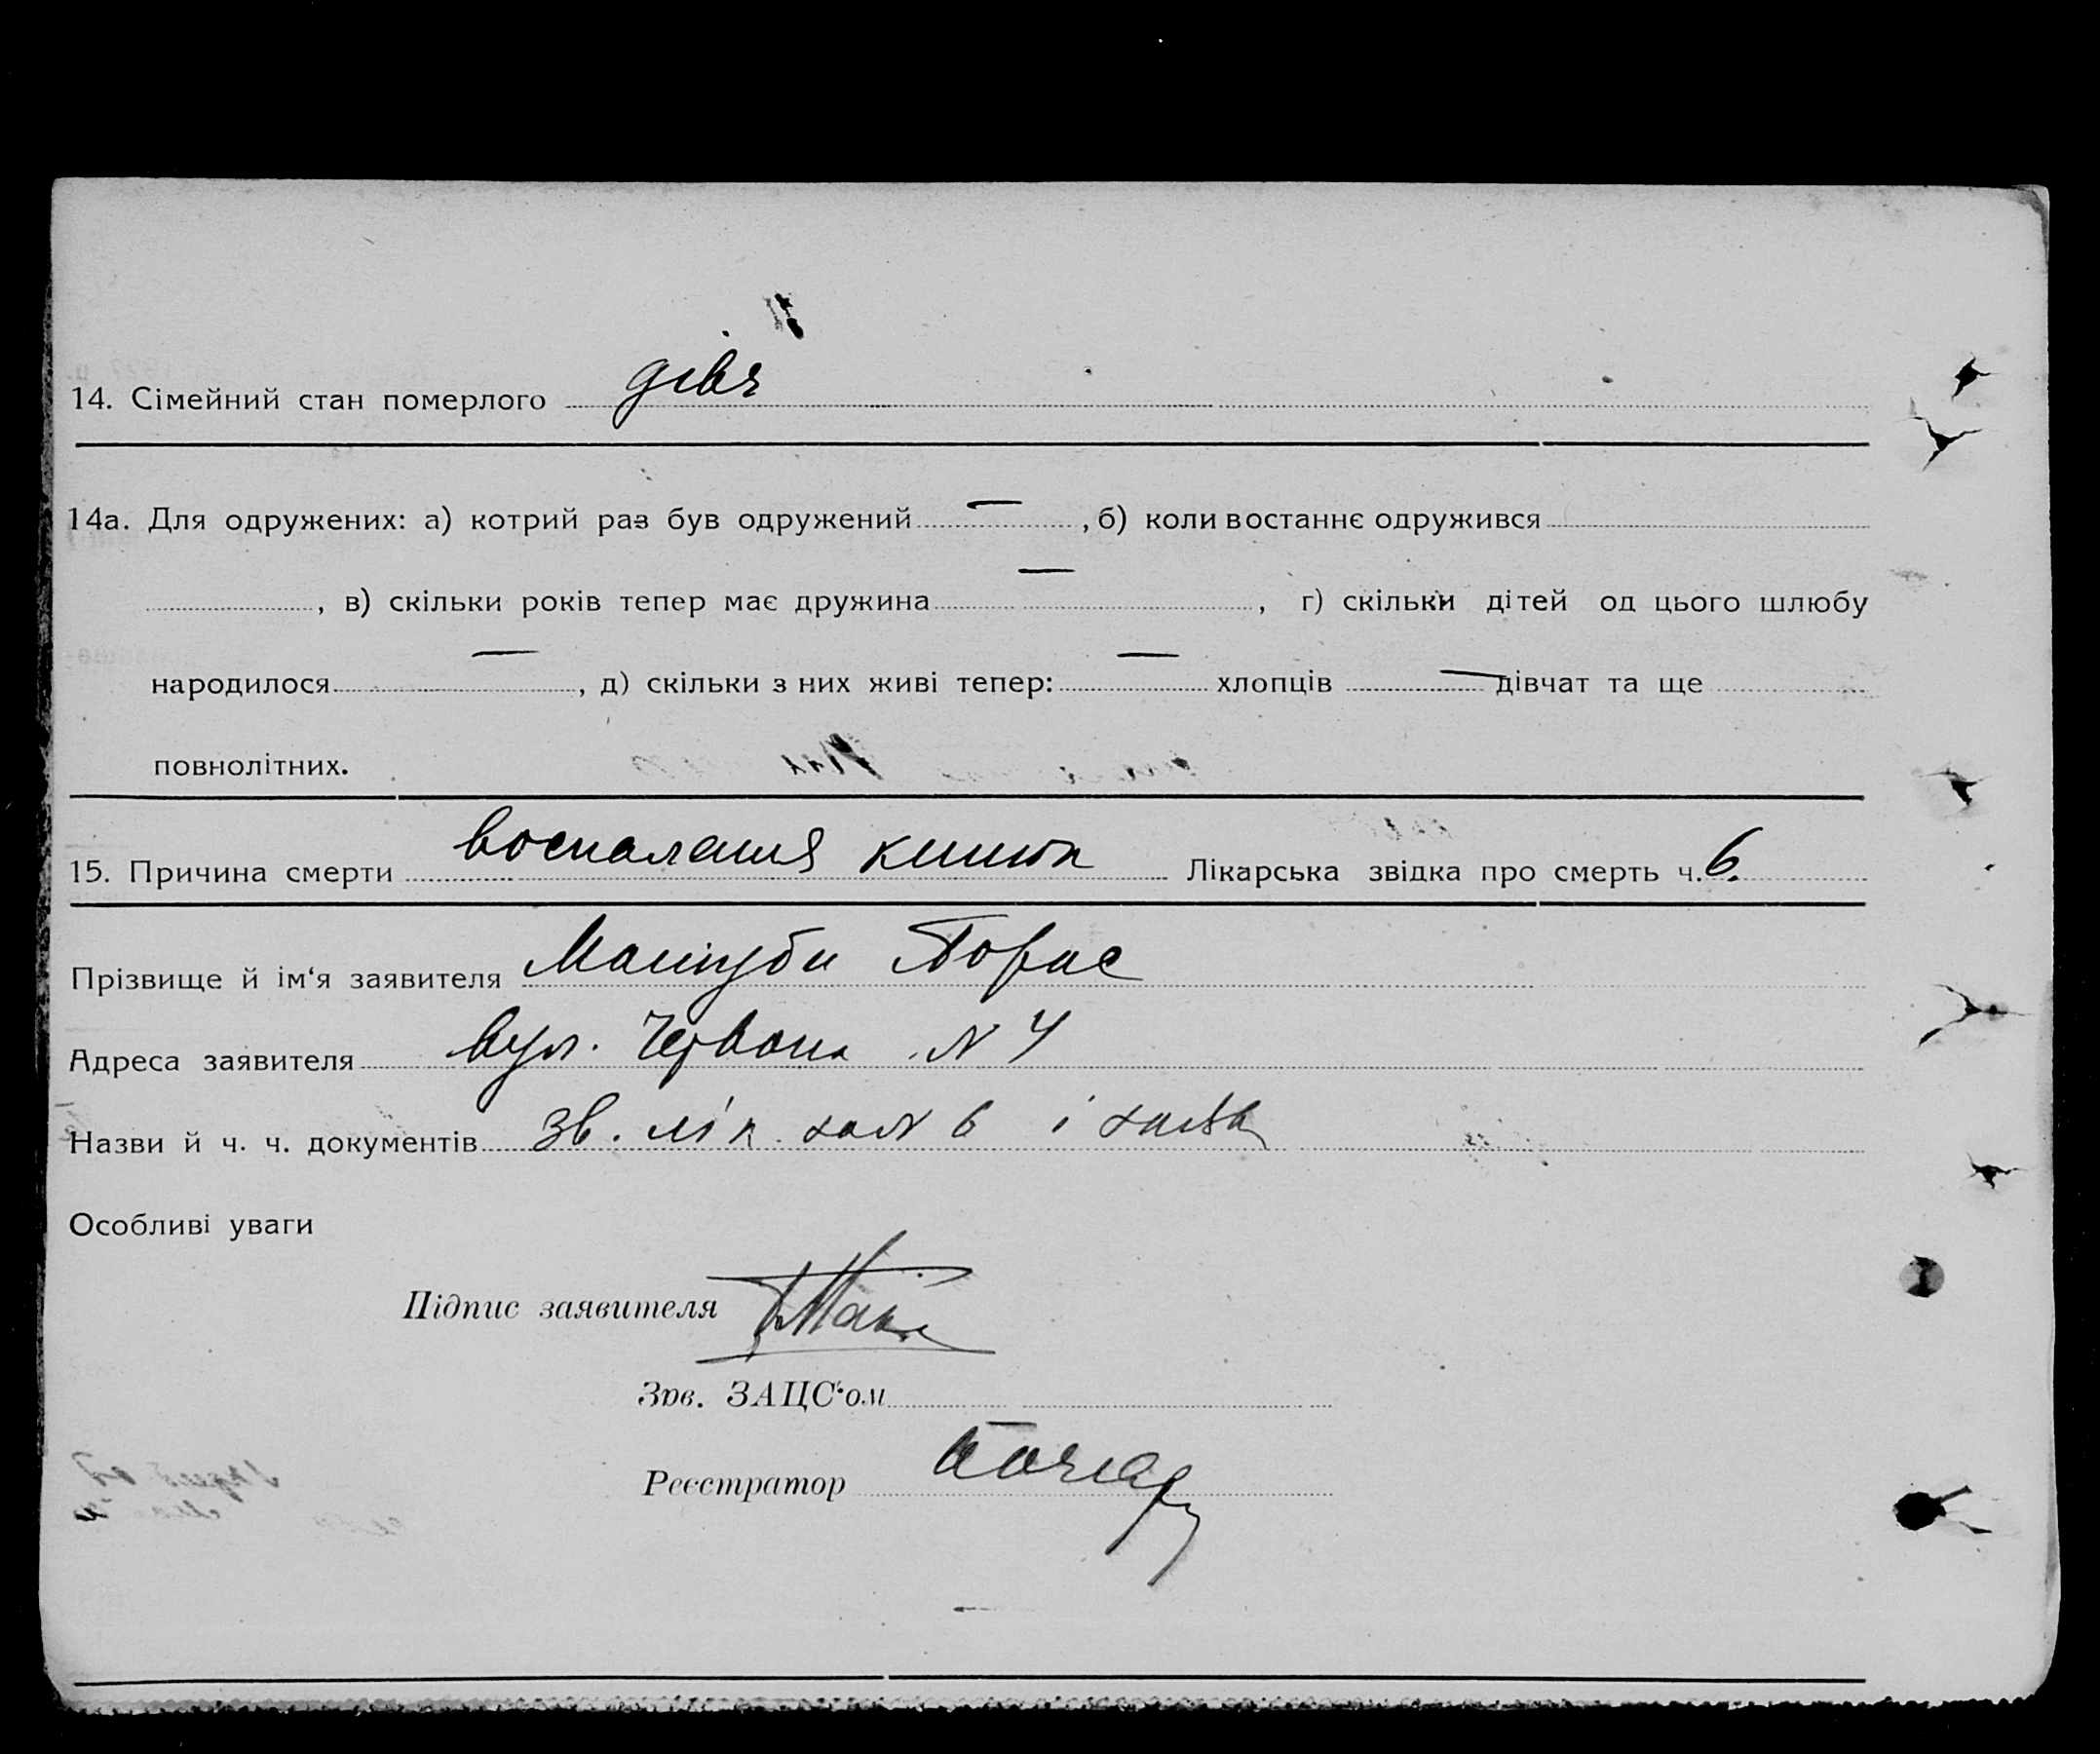 14. Сімейний стан померлого дівч
14а. Для одружених: а) котрий раз був одружений — , б) коли востаннє одружився
, в) скільки років тепер має дружина — , г) скільки дітей од цього шлюбу
народилося — , д) скільки з них живі тепер: — хлопців — дівчат та ще
повнолітних.
15. Причина смерти воспаления кишок Лікарська звідка про смерть ч. 6.
Прізвище й ім‘я заявителя
Адреса заявителя вул. Червона N 4
Назви й ч. ч. документів зв. лік. N 6 і
Особливі уваги
Підпис заявителя
Зав. ЗАЦС‘ом
Реєстратор